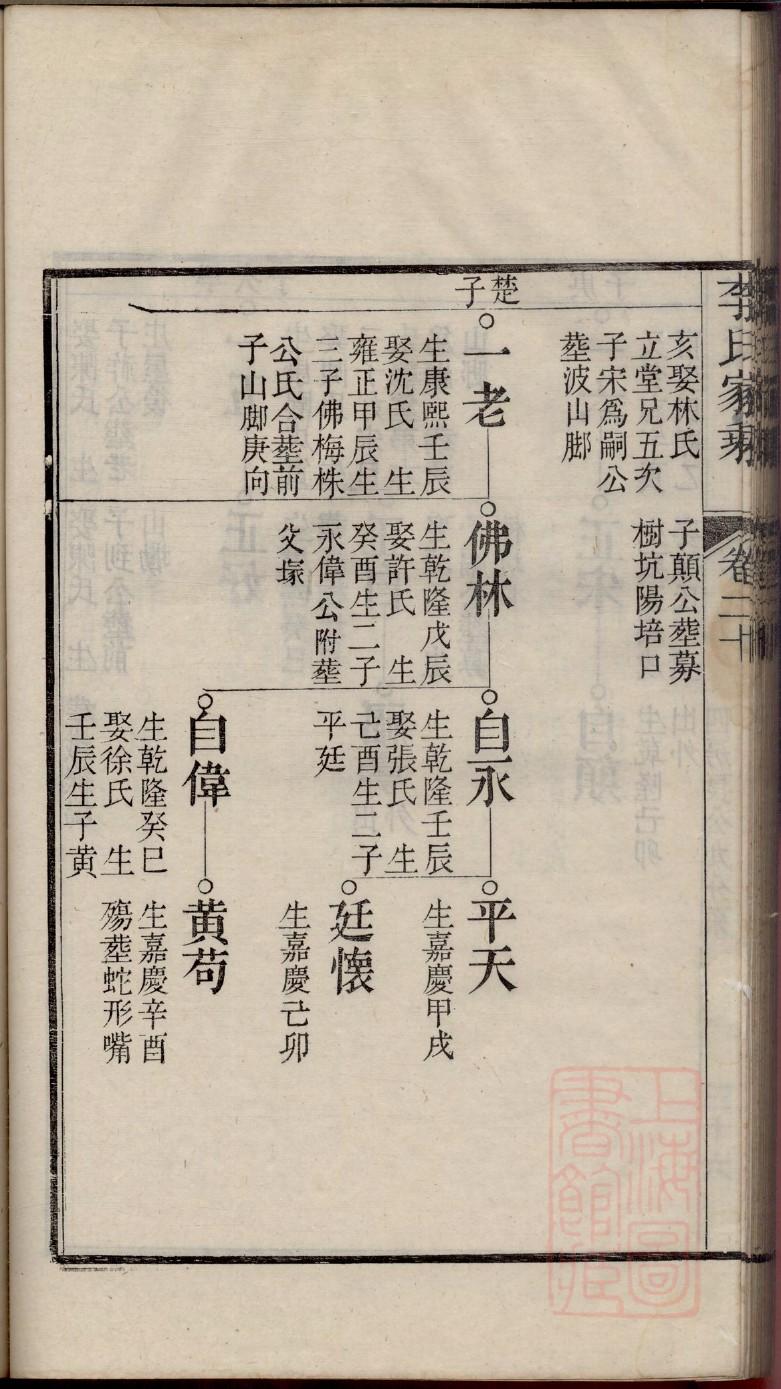 李氏家乘
卷二十
亥娶林氏
立堂兄五次
子宋爲嗣公
塟波山脚
子顛公塟募
樹坑陽培口
楚子
一老
生康熙壬辰
娶沈氏 生
雍正甲辰生
三子佛梅株
公氏合塟前
子山脚庚向
佛林
生乾隆戊辰
娶許氏 生
癸酉生二子
永偉公附塟
父塚
自永
生乾隆壬辰
娶張氏 生
己酉生二子
平廷
自偉
生乾隆癸巳
娶徐氏 生
壬辰生子黄
平天
生嘉慶甲戌
廷懐
生嘉慶己卯
黄苟
生嘉慶辛酉
殤塟蛇形嘴
上海圖書館藏